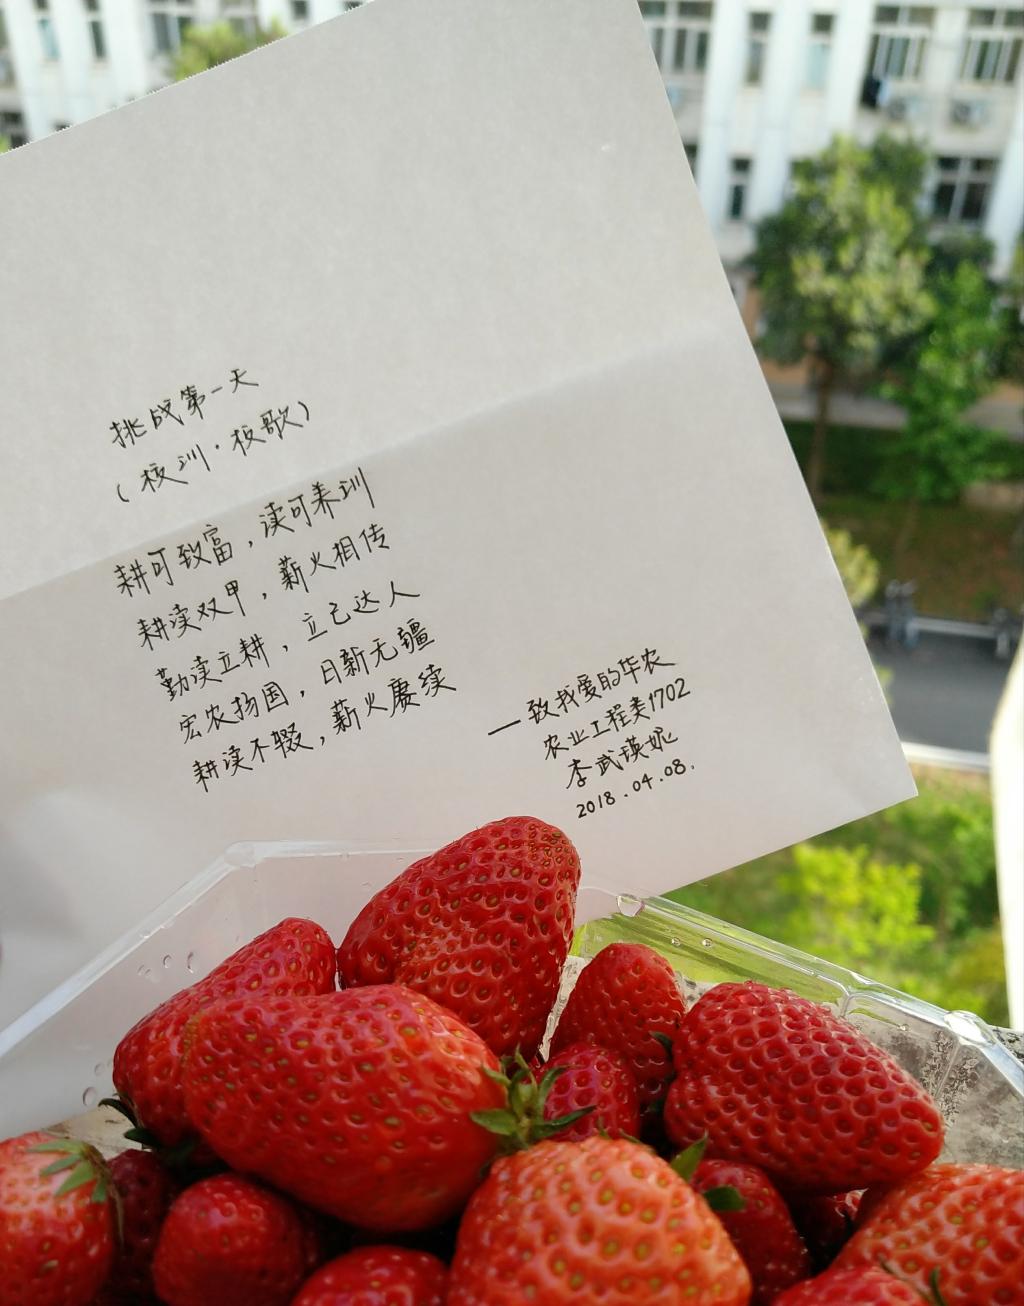 挑战第一天
（校训·校歌）
耕可致富，读可养训
耕读双甲，薪火相传
勤读立耕，立己达人
宏农扬国，日新无疆
耕读不辍，薪火赓续
—致我爱的华农
农业工程类1702
李武瑛妮
2018.04.08.